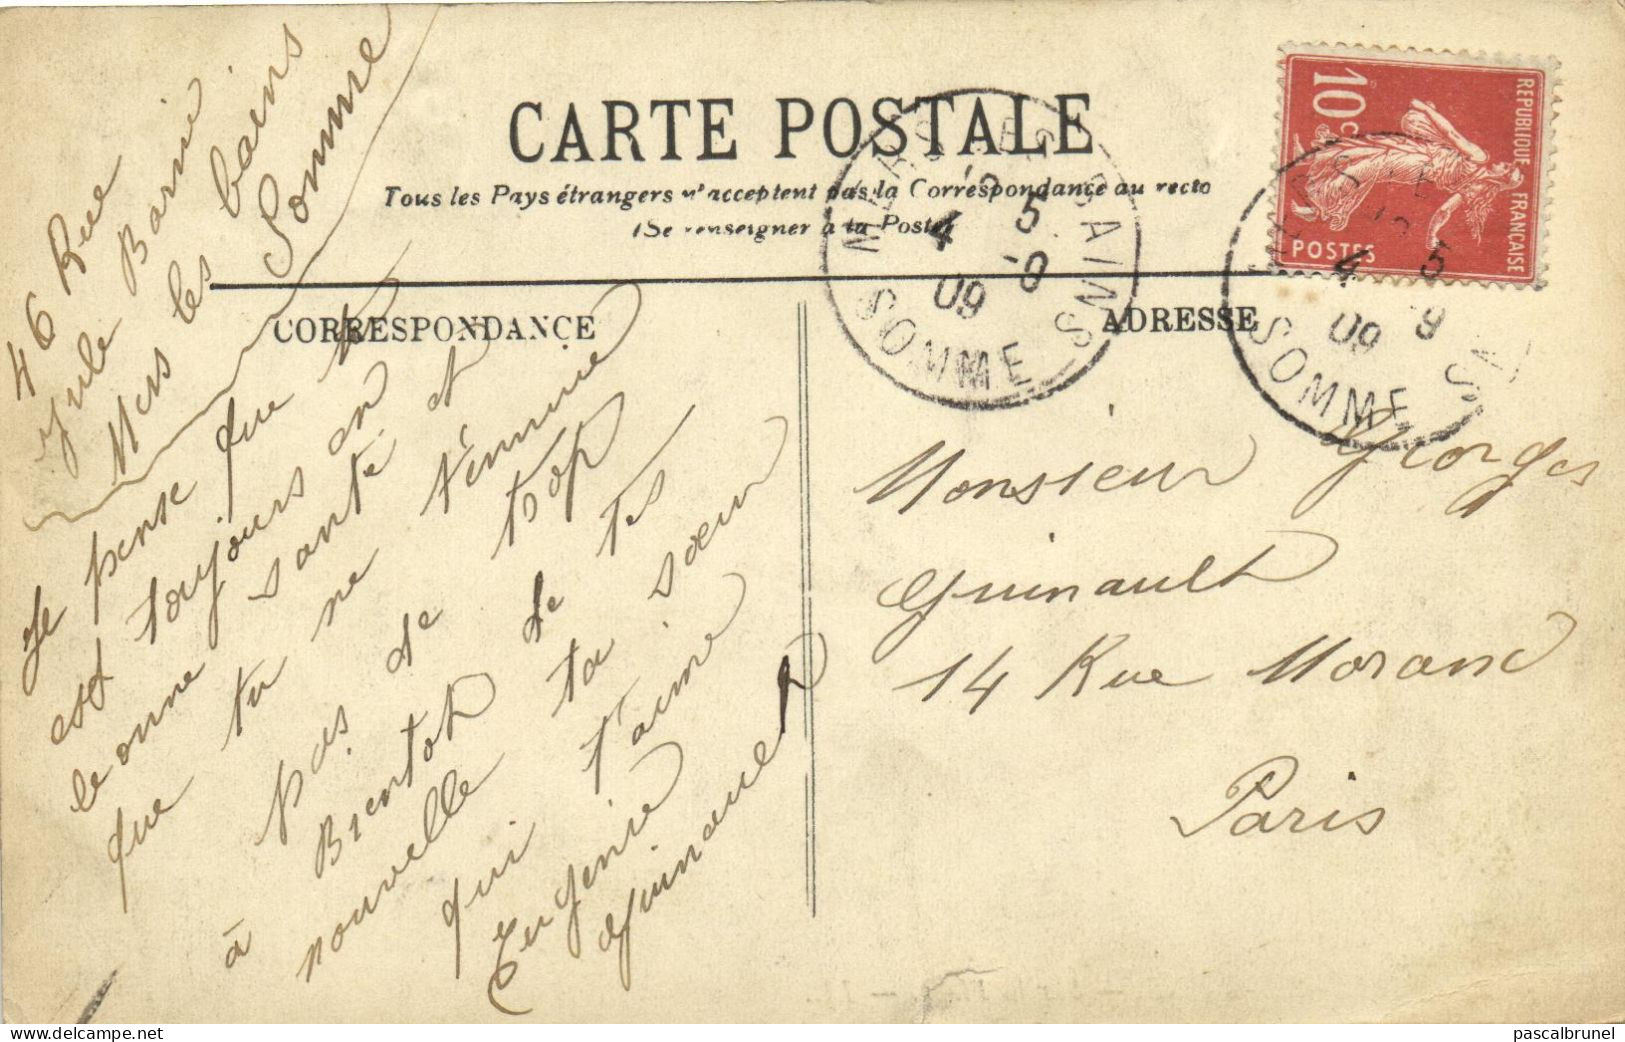 CARTE POSTALE
Tous les Pays étrangers n'acceptent pas la Correspondance au recto
(Se renseigner à la Poste)
CORRESPONDANCE
ADRESSE
REPUBLIQUE FRANÇAISE
10 c
POSTES
MERS LES BAINS
4 5
09
SOMME
4 5
09
SOMME
46 Rue
Jule Barni
Mers les bains
Somme
Je pense que tu
est toujours en
bonne santé et
que tu ne t'ennuie
pas de trop
à Bientot de tes
nouvelle ta sœur
qui t'aime
Eugenie
Guinault
Monsieur Georges
Guinault
14 Rue Morand
Paris
delcampe.net
pascalbrunel